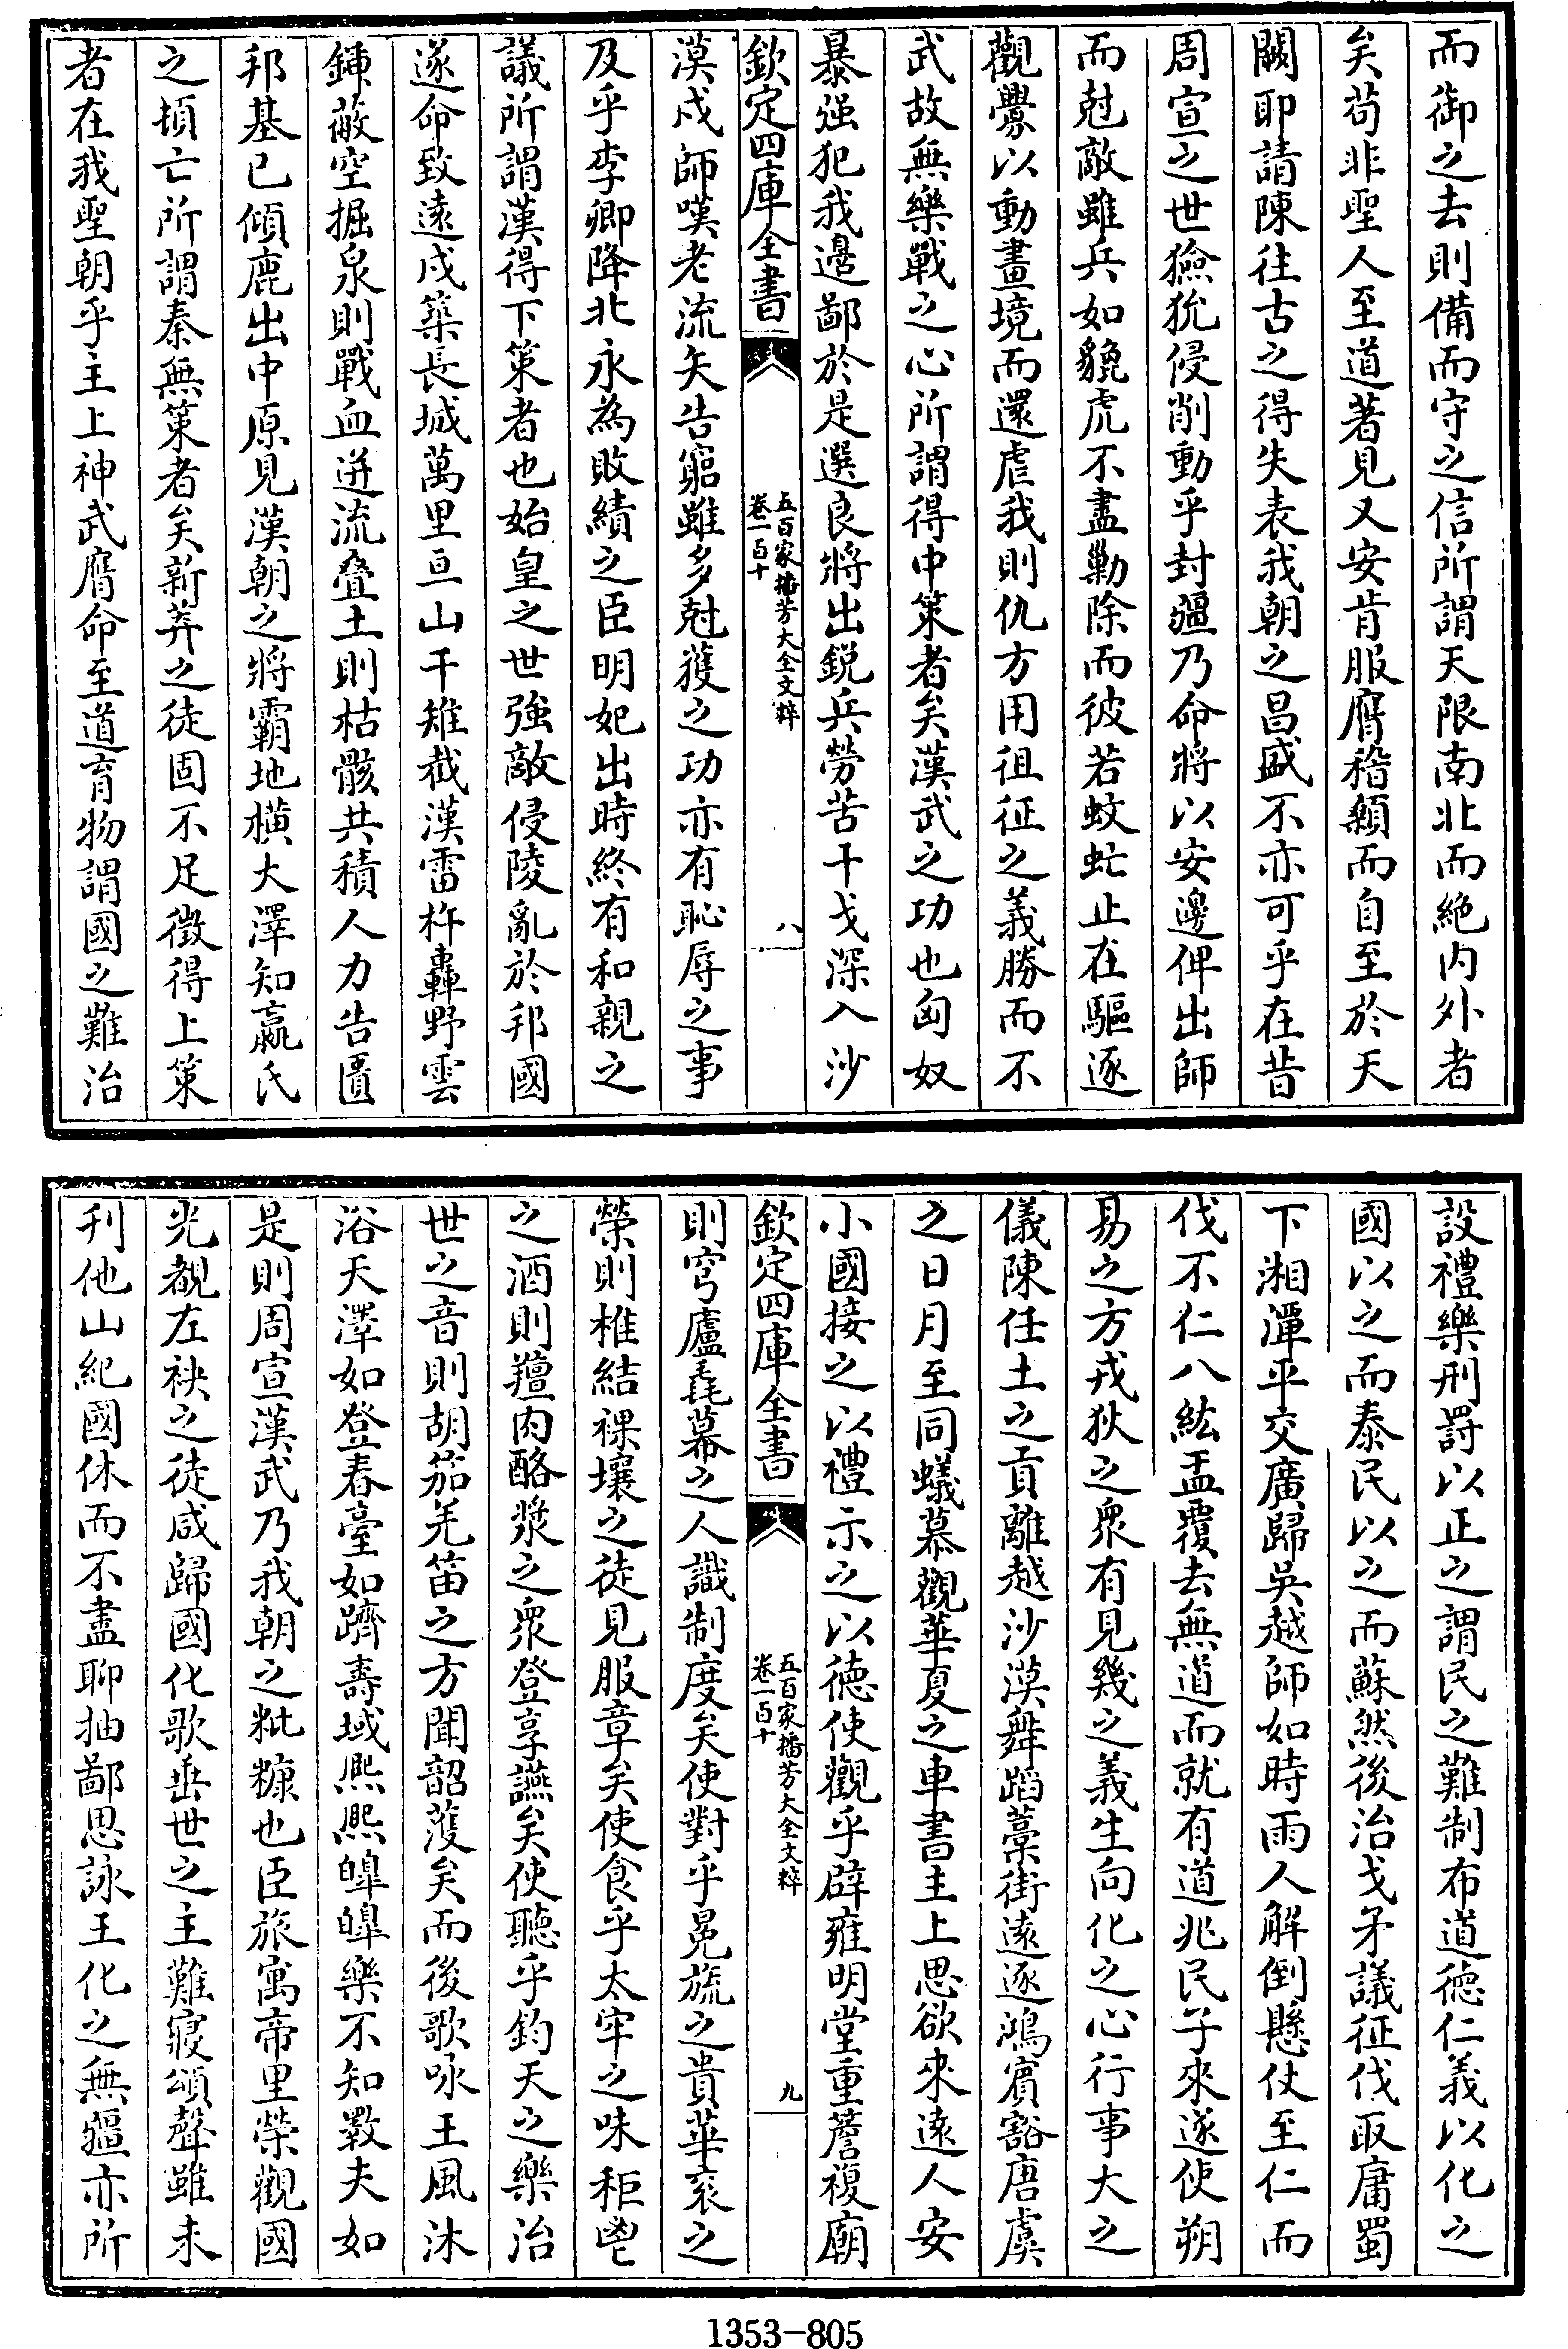 而御之去則備而守之信所謂天限南北而絶内外者
矣苟非聖人至道著見又安肯服膺稽顙而自至於天
闕耶請陳往古之得失表我朝之昌盛不亦可乎在昔
周宣之世獫狁侵削動乎封疆乃命將以安邊俾出師
而尅敵雖兵如貔虎不盡勦除而彼若蚊虻止在驅逐
觀釁以動畫境而還虐我則仇方用徂征之義勝而不
武故無樂戰之心所謂得中策者矣漢武之功也匈奴
暴强犯我邉鄙於是選良將出銳兵勞苦干戈深入沙
欽定四庫全書
五百家播芳大全文粹
卷一百十
八
漠戍師嘆老流矢告窮雖多尅獲之功亦有恥辱之事
及乎李卿降北永為敗績之臣明妃出時終有和親之
議所謂漢得下策者也始皇之世強敵侵陵亂於邦國
遂命致遠戍築長城萬里亘山千雉截漢雷杵轟野雲
鍤蔽空掘泉則戰血迸流疊土則枯骸共積人力告匱
邦基已傾鹿出中原見漢朝之將霸地横大澤知嬴氏
之頃亡所謂秦無策者矣新莽之徒固不足徵得上策
者在我聖朝乎主上神武膺命至道育物謂國之難治
設禮樂刑罸以正之謂民之難制布道德仁義以化之
國以之而泰民以之而蘇然後治戈矛議征伐取庸蜀
下湘潭平交廣歸吳越師如時雨人解倒懸仗至仁而
伐不仁八紘盂覆去無道而就有道兆民子來遂使朔
易之方戎狄之衆有見幾之義生向化之心行事大之
儀陳任土之貢離越沙漠舞蹈藁街逺逐鴻賓豁唐虞
之日月至同蟻慕觀華夏之車書主上思欲來逺人安
小國接之以禮示之以德使觀乎辟雍明堂重簷複廟
欽定四庫全書
五百家播芳大全文粹
卷一百十
九
則穹廬毳幕之人識制度矣使對乎冕旒之貴華衮之
榮則椎結裸壤之徒見服章矣使食乎太牢之味秬鬯
之酒則羶肉酪漿之衆登享讌矣使聽乎鈞天之樂治
世之音則胡笳羌笛之方聞韶濩矣而後歌咏王風沐
浴天澤如登春臺如躋夀域熈熈皥皥樂不知斁夫如
是則周宣漢武乃我朝之粃糠也臣旅寓帝里榮觀國
光覩左袂之徒咸歸國化歌垂世之主難寢頌聲雖未
刋他山紀國休而不盡聊抽鄙思詠王化之無疆亦所
1353-805